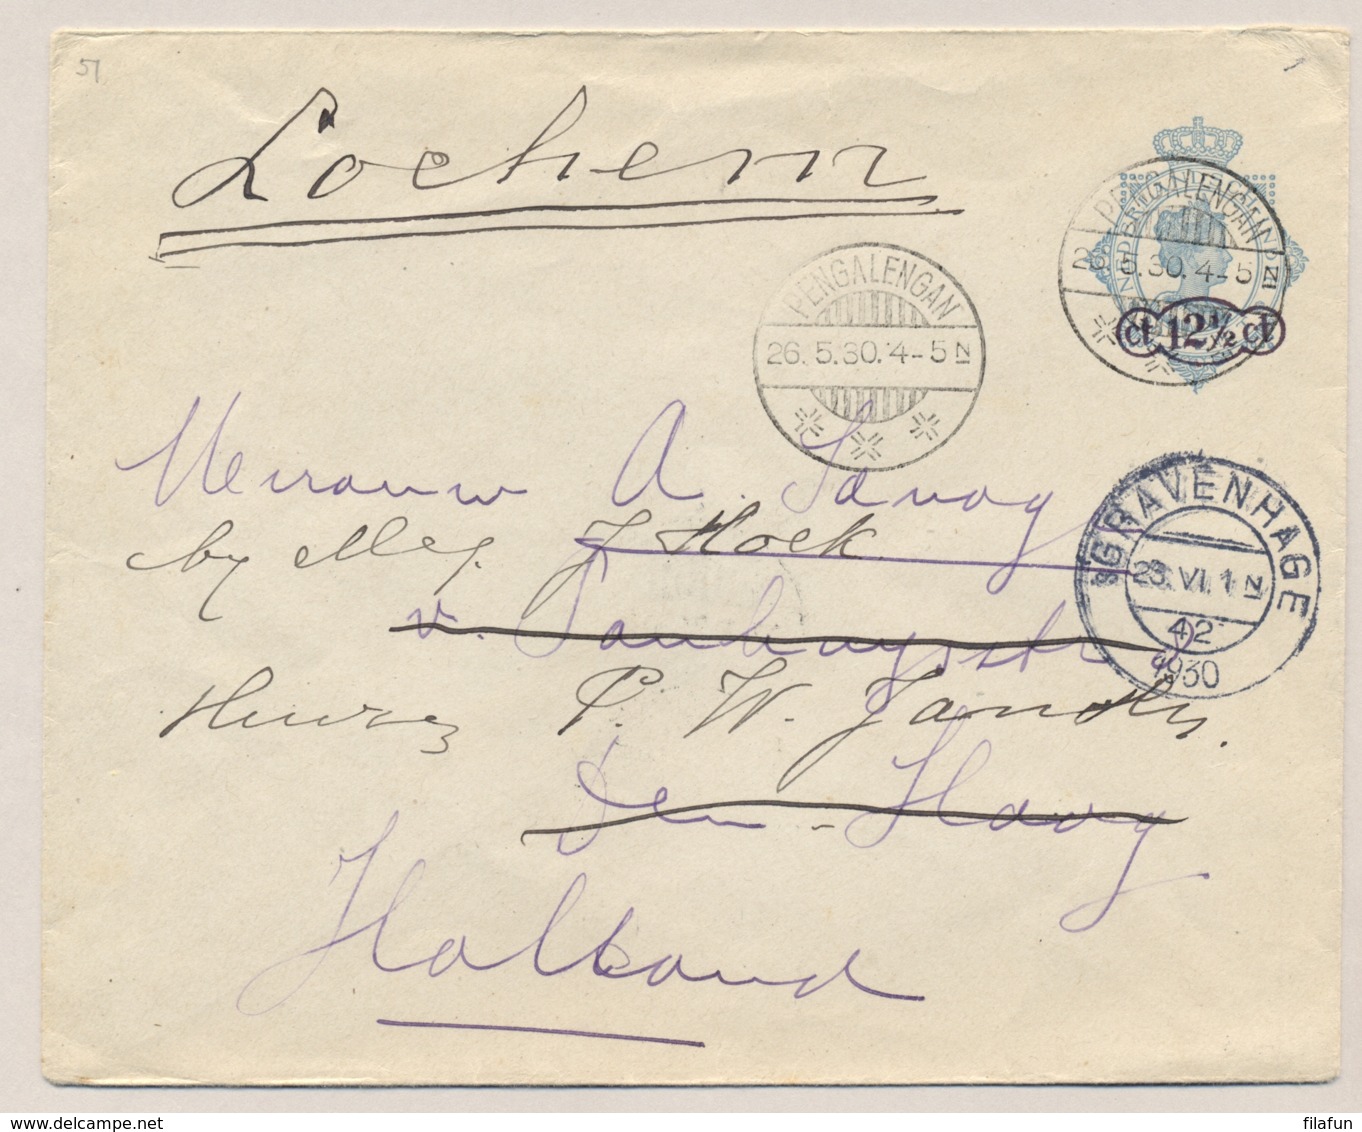 51
Lochem
PENGALENGAN
26.5.30.4-5 N
PENGALENGAN
26.5.30.4-5 N
ct 12½ ct
Mevrouw A. Savoy
by Mej. J Hoek
'sGRAVENHAGE
23.VI.1 N
42
1930
v.
Huize P. W. Janssen.
Den Haag
Holland
delcampe.net
filafun